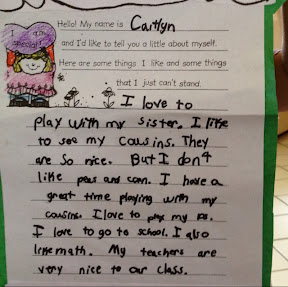 I am
special!
Hello! My name is Caitlyn
and I'd like to tell you a little about myself.
Here are some things I like and some things
that I just can't stand.
I love to
play with my sister. I like
to see my cousins. They
are so nice. But I don't
like peas and corn. I have a
great time playing with my
cousins. I love to play my
I love to go to school. I also
like math. My teachers are
very nice to our class.